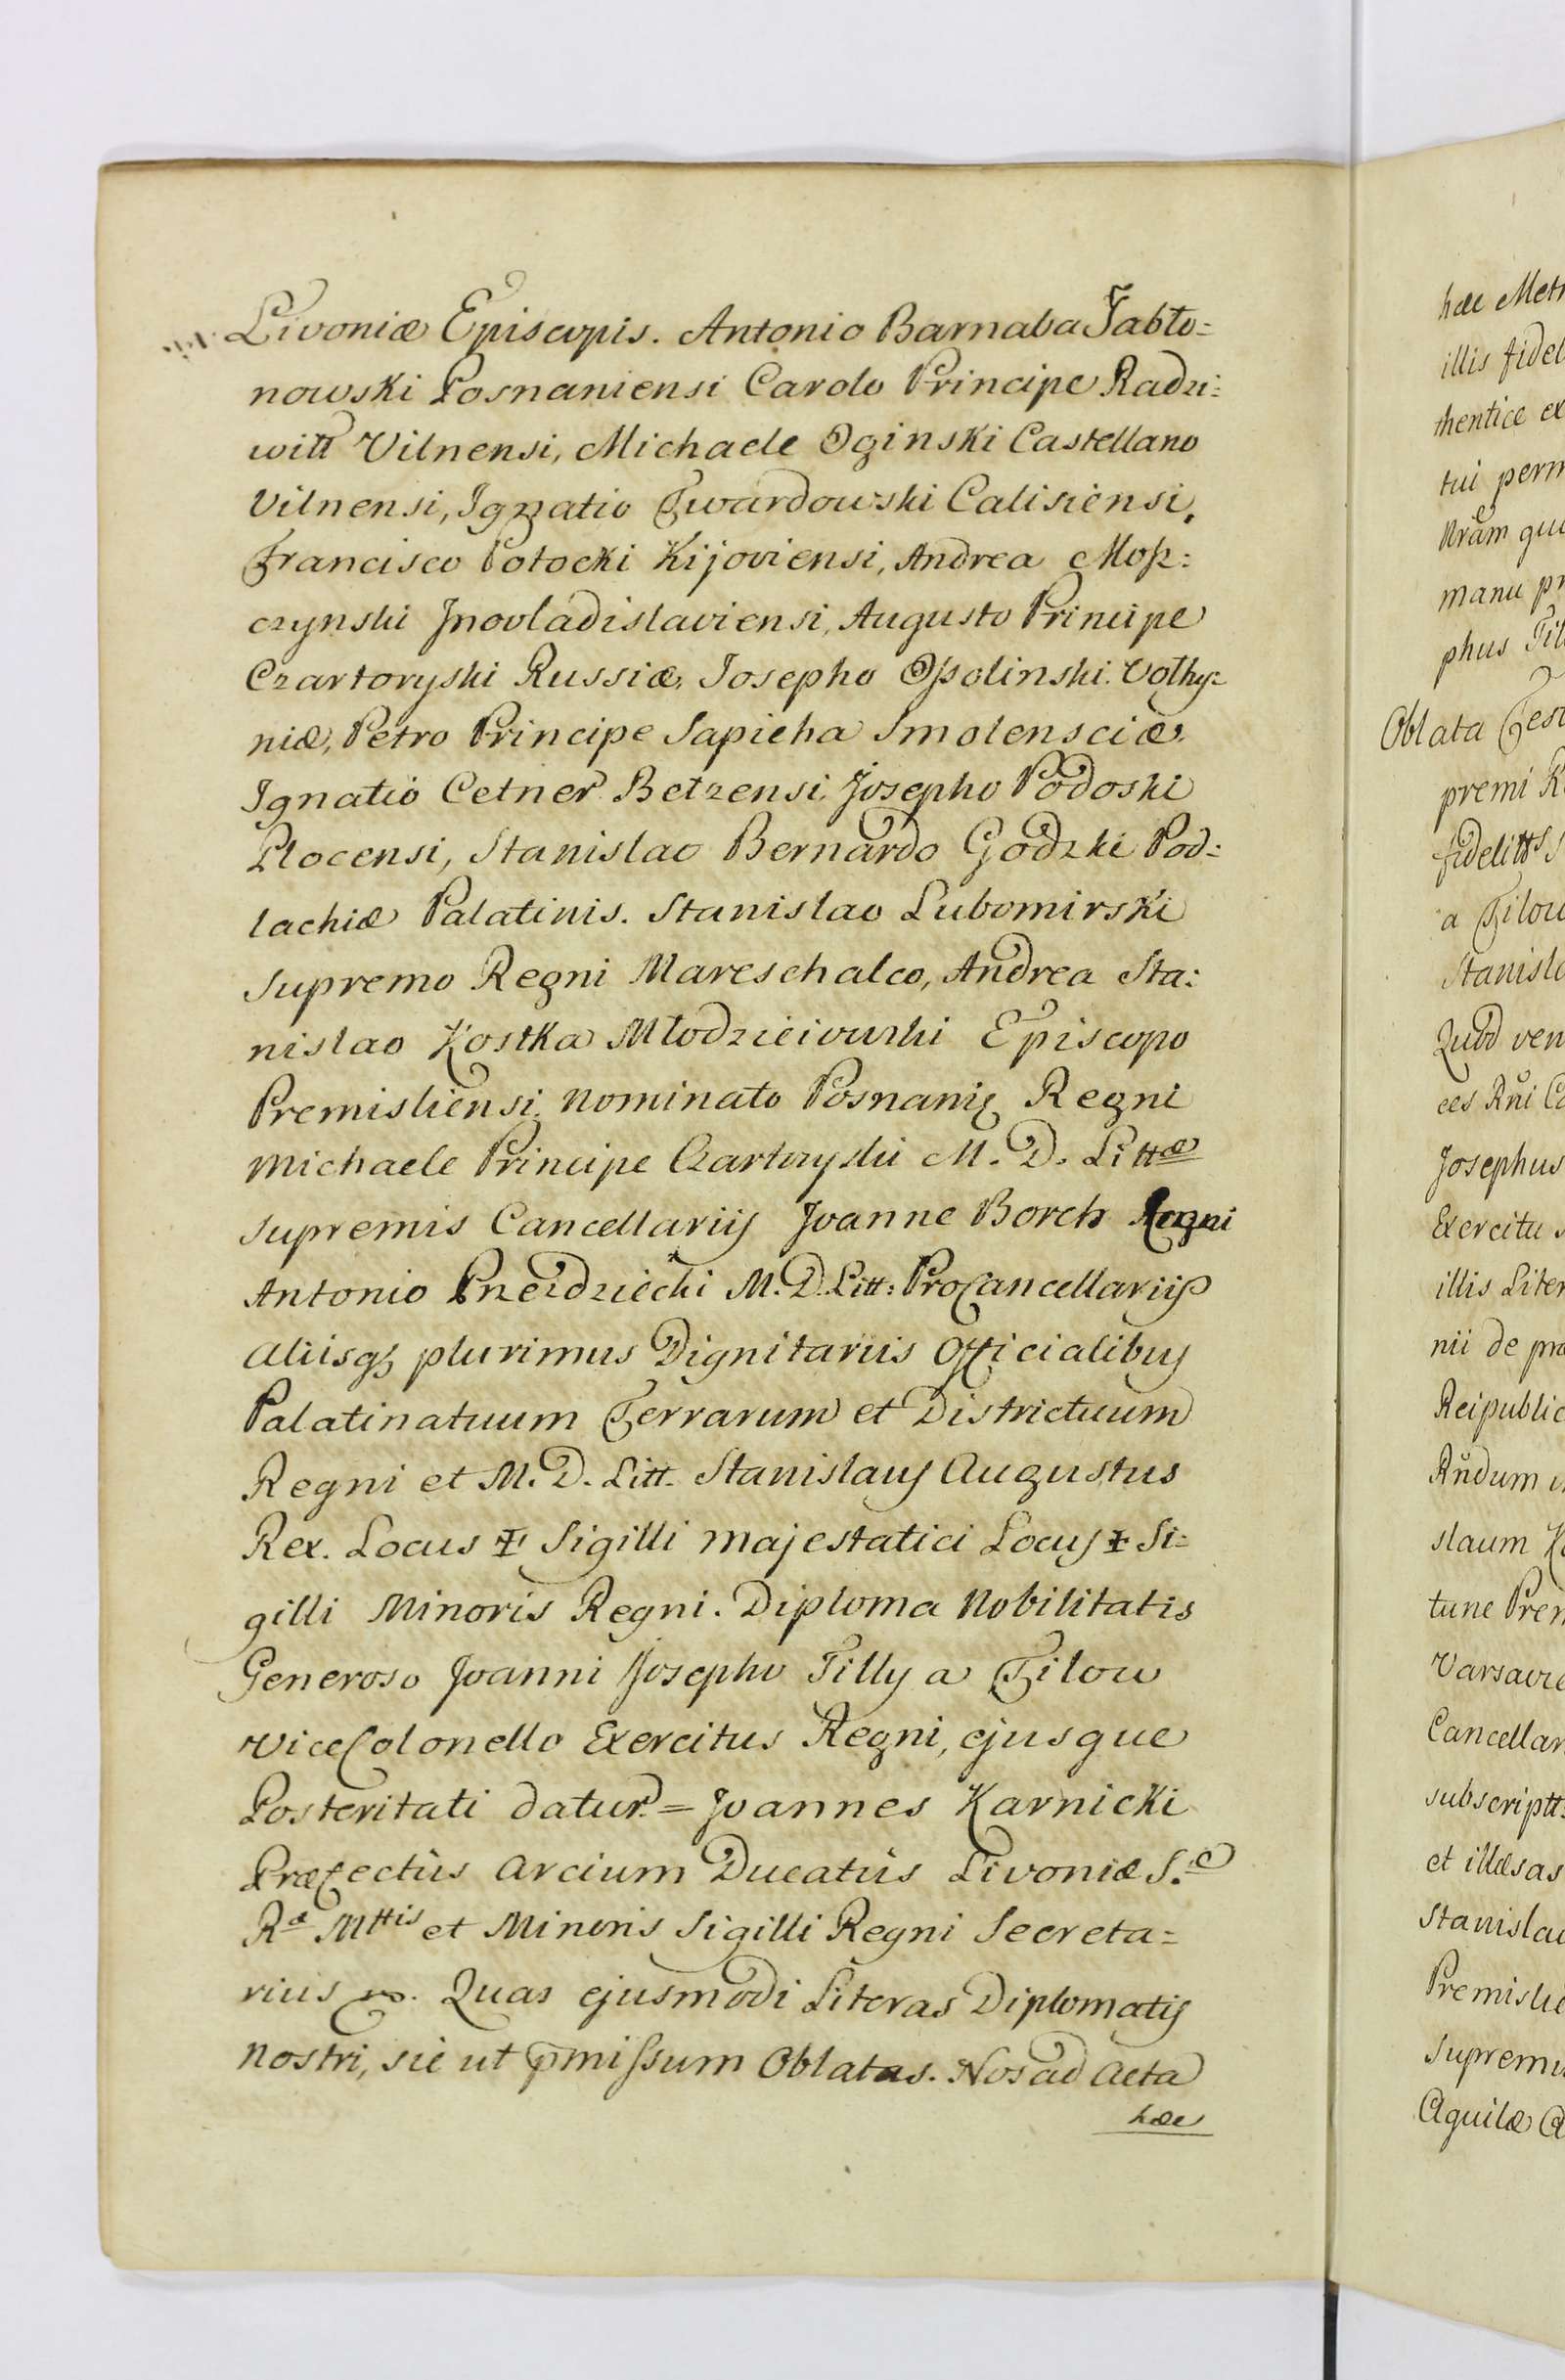 Livoniæ Episcopis. Antonio Barnaba Jabło=
nowski Posnaniensi Carolo Principe Radzi=
wiłł Vilnensi, Michaele Oginski Castellano
Vilnensi, Ignatio Twardowski Calisiensi,
Francisco Potocki Kijoviensi, Andrea Mosz:
czynski Jnovladislaviensi, Augusto Principe
Czartoryski Russiæ, Josepho Ossolinski. Volhy=
niæ, Petro Principe Sapieha Smolensciæ.
Ignatio Cetner Betzensi, Josepho Podoski
Plocensi, Stanislao Bernardo Godzki Pod=
lachiæ Palatinis. Stanislao Lubomirski
Supremo Regni Mareschalco, Andrea Sta=
nislao Kostka Młodzieiowski Episcopo
Premisliensi nominato Posnanię Regni
Michaele Principe Czartoryski M. D. Littæ
Supremis Cancellariis Joanne Borch Regni
Antonio Przezdziecki M. D. Litt: ProCancellariis
aliisq; plurimus Dignitariis Officialibus
Palatinatuum Terrarum et Districtuum
Regni et M. D. Litt. Stanislaus Augustus
Rex. Locus ‡ Sigilli Majestatici Locus ‡ Si=
gilli Minoris Regni. Diploma Nobilitatis
Generoso Joanni Josepho Tilly a Tilow
ViceColonello Exercitus Regni, ejusque
Posteritati datur. = Joannes Karnicki
Præfectus Arcium Ducatûs Livoniæ S.æ
Ræ Mttis et Minoris Sigilli Regni Secreta=
rius mp. Quas ejusmodi Literas Diplomatis
nostri, sic ut p̄missum Oblatas. Nos ad Acta
hæc
hæc Metr
illis fidel
thentice ex
tui perm
Nram qui
manu pr
phus Til
Oblata Test
premi R
fidelitts S
a Tilow
Stanisla
Quod ven
ces Rni Ca
Josephus
Exercitu
illis Liter
nii de præ
Reipublic
Rndum
slaum K
tunc Prem
Varsavie
Cancellar
subscriptt:
et illæsas
Stanislau
Premislie
Supremu
Aquilæ A